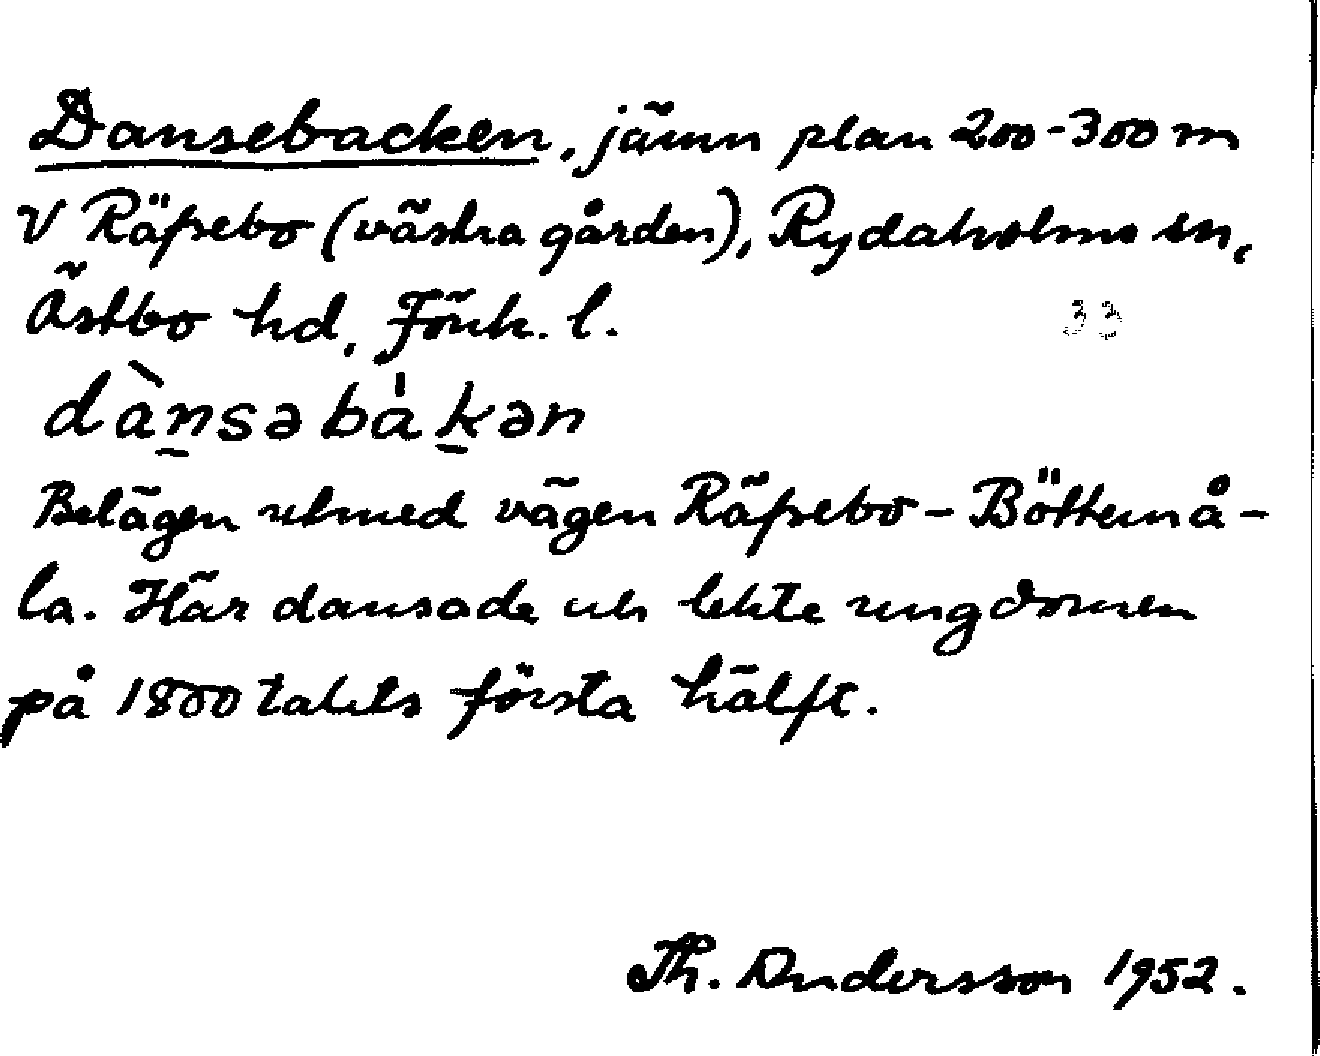 Dansebacken, jämn plan 200-300 m
V Räpsebo (västra gården), Rydaholms sn,
Östbo hd, Jönk. l.
33
dànsəbàkən
Belägen utmed vägen Räpsebo - Böttemå-
la. Här dansade och lekte ungdomen
på 1800 talets första hälft.
Th. Andersson 1952.